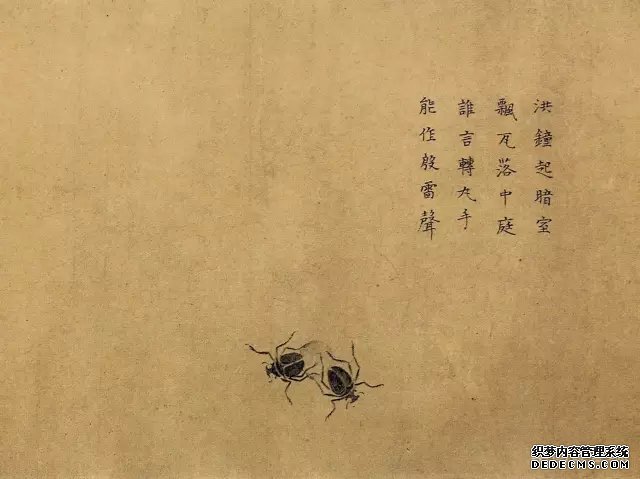 洪鐘起暗室
飄瓦落中庭
誰言轉丸手
能作殷雷聲
织梦内容管理系统
DEDECMS.COM